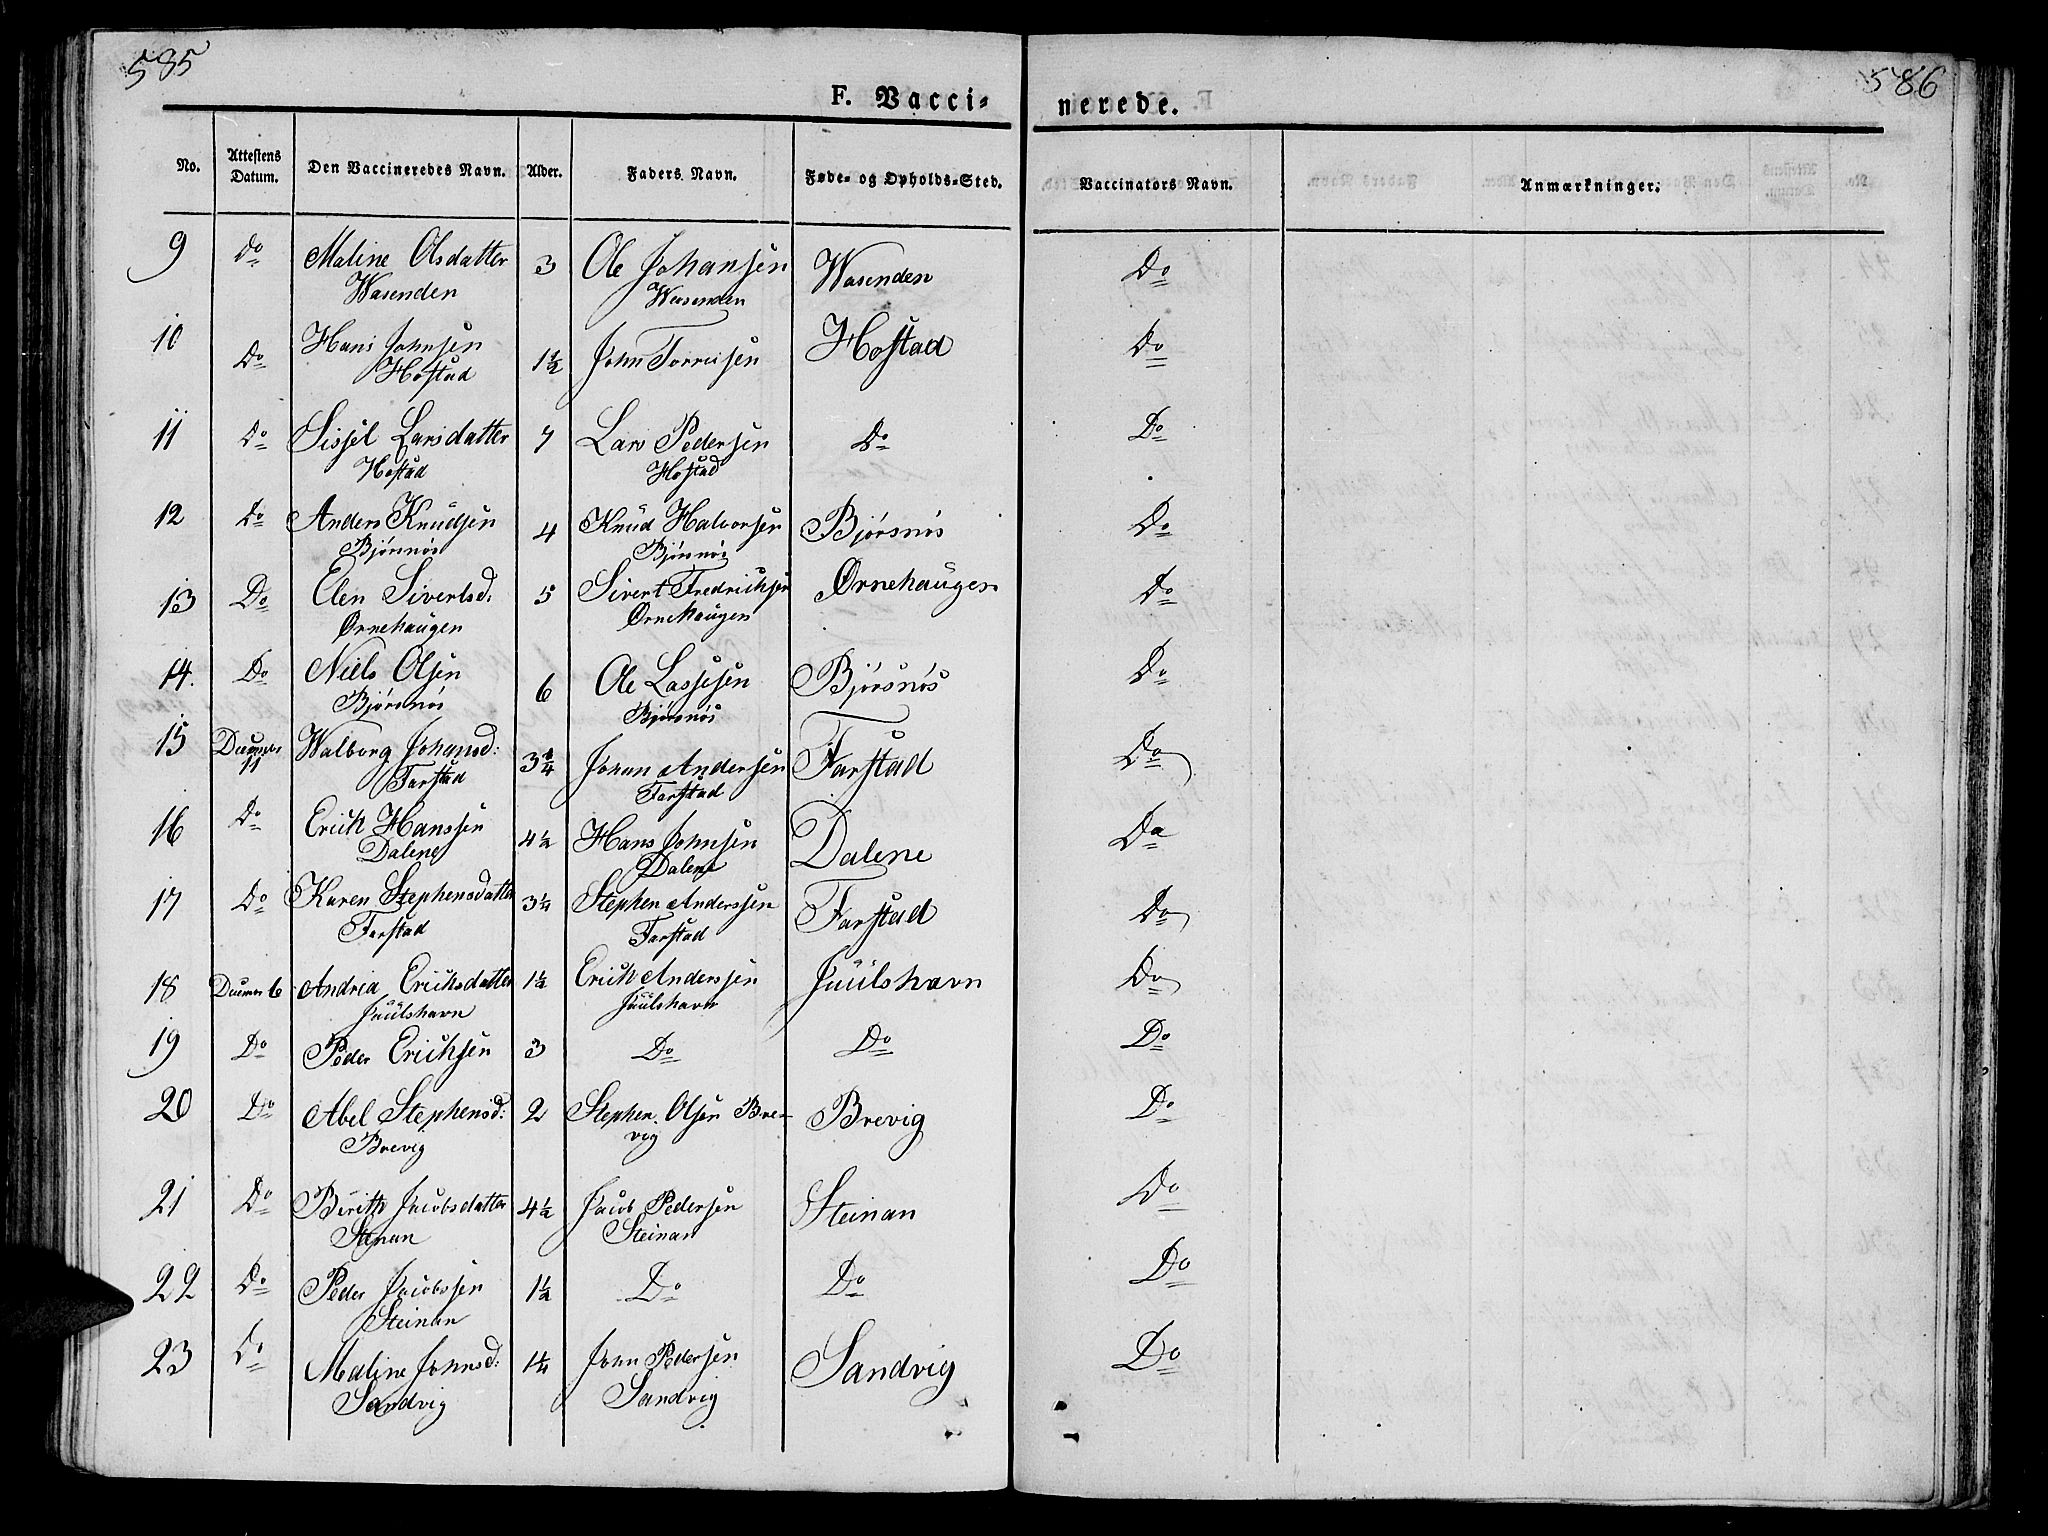 585
586
F. Vacci-
nerede.
No.
Attestens Datum.
Den Vaccineredes Navn.
Alder.
Faders Navn.
Føde- og Opholds-Sted.
Vaccinators Navn.
Anmærkninger.
9 Do Maline Olsdatter 3 Ole Johansen Wasenden Do
Wasenden Wasenden
10 Do Hans Johnsen 1½ John Torrisen Hostad Do
Hostad
11 Do Sissel Larsdatter 7 Lars Pedersen Do Do
Hostad Hostad
12 Do Anders Knudsen 4 Knud Halvorsen Bjørsnøs Do
Bjørsnøs Bjørsnøs
13 Do Elen Sivertsd: 5 Sivert Fredrichsen Ørnehaugen Do
Ørnehaugen Ørnehaugen
14. Do Niels Olsen 6 Ole Lassesen Bjørsnøs Do
Bjørsnøs Bjørsnøs
15 11 Walborg Johansd: 3¾ Johan Andersen Farstad Do
Farstad Farstad
16 Do Erich Hanssen 4½ Hans Johnsen Dalene Do
Dalene Dalene
17 Do Karen Stephensdatter 3¼ Stephen Anderssen Farstad Do
Farstad Farstad
18 6 Andrea Ericksdatter 1½ Erich Anderssen Juulshavn Do
Juulshavn Juulshavn
19 Do Peder Erichsen 3 Do Do Do
20 Do Abel Stephensd: 2 Stephen Olsen Bre- Brevig Do
Brevig vig
21 Do Berith Jacobsdatter 4½ Jacob Pedersen Steinan Do
Stenan Steinan
22 Do Peder Jacobssen 1½ Do Do Do
Steinan
23 Do Maline Johnsd: 1¼ John Pedersen Sandvig Do
Sandvig Sandvig